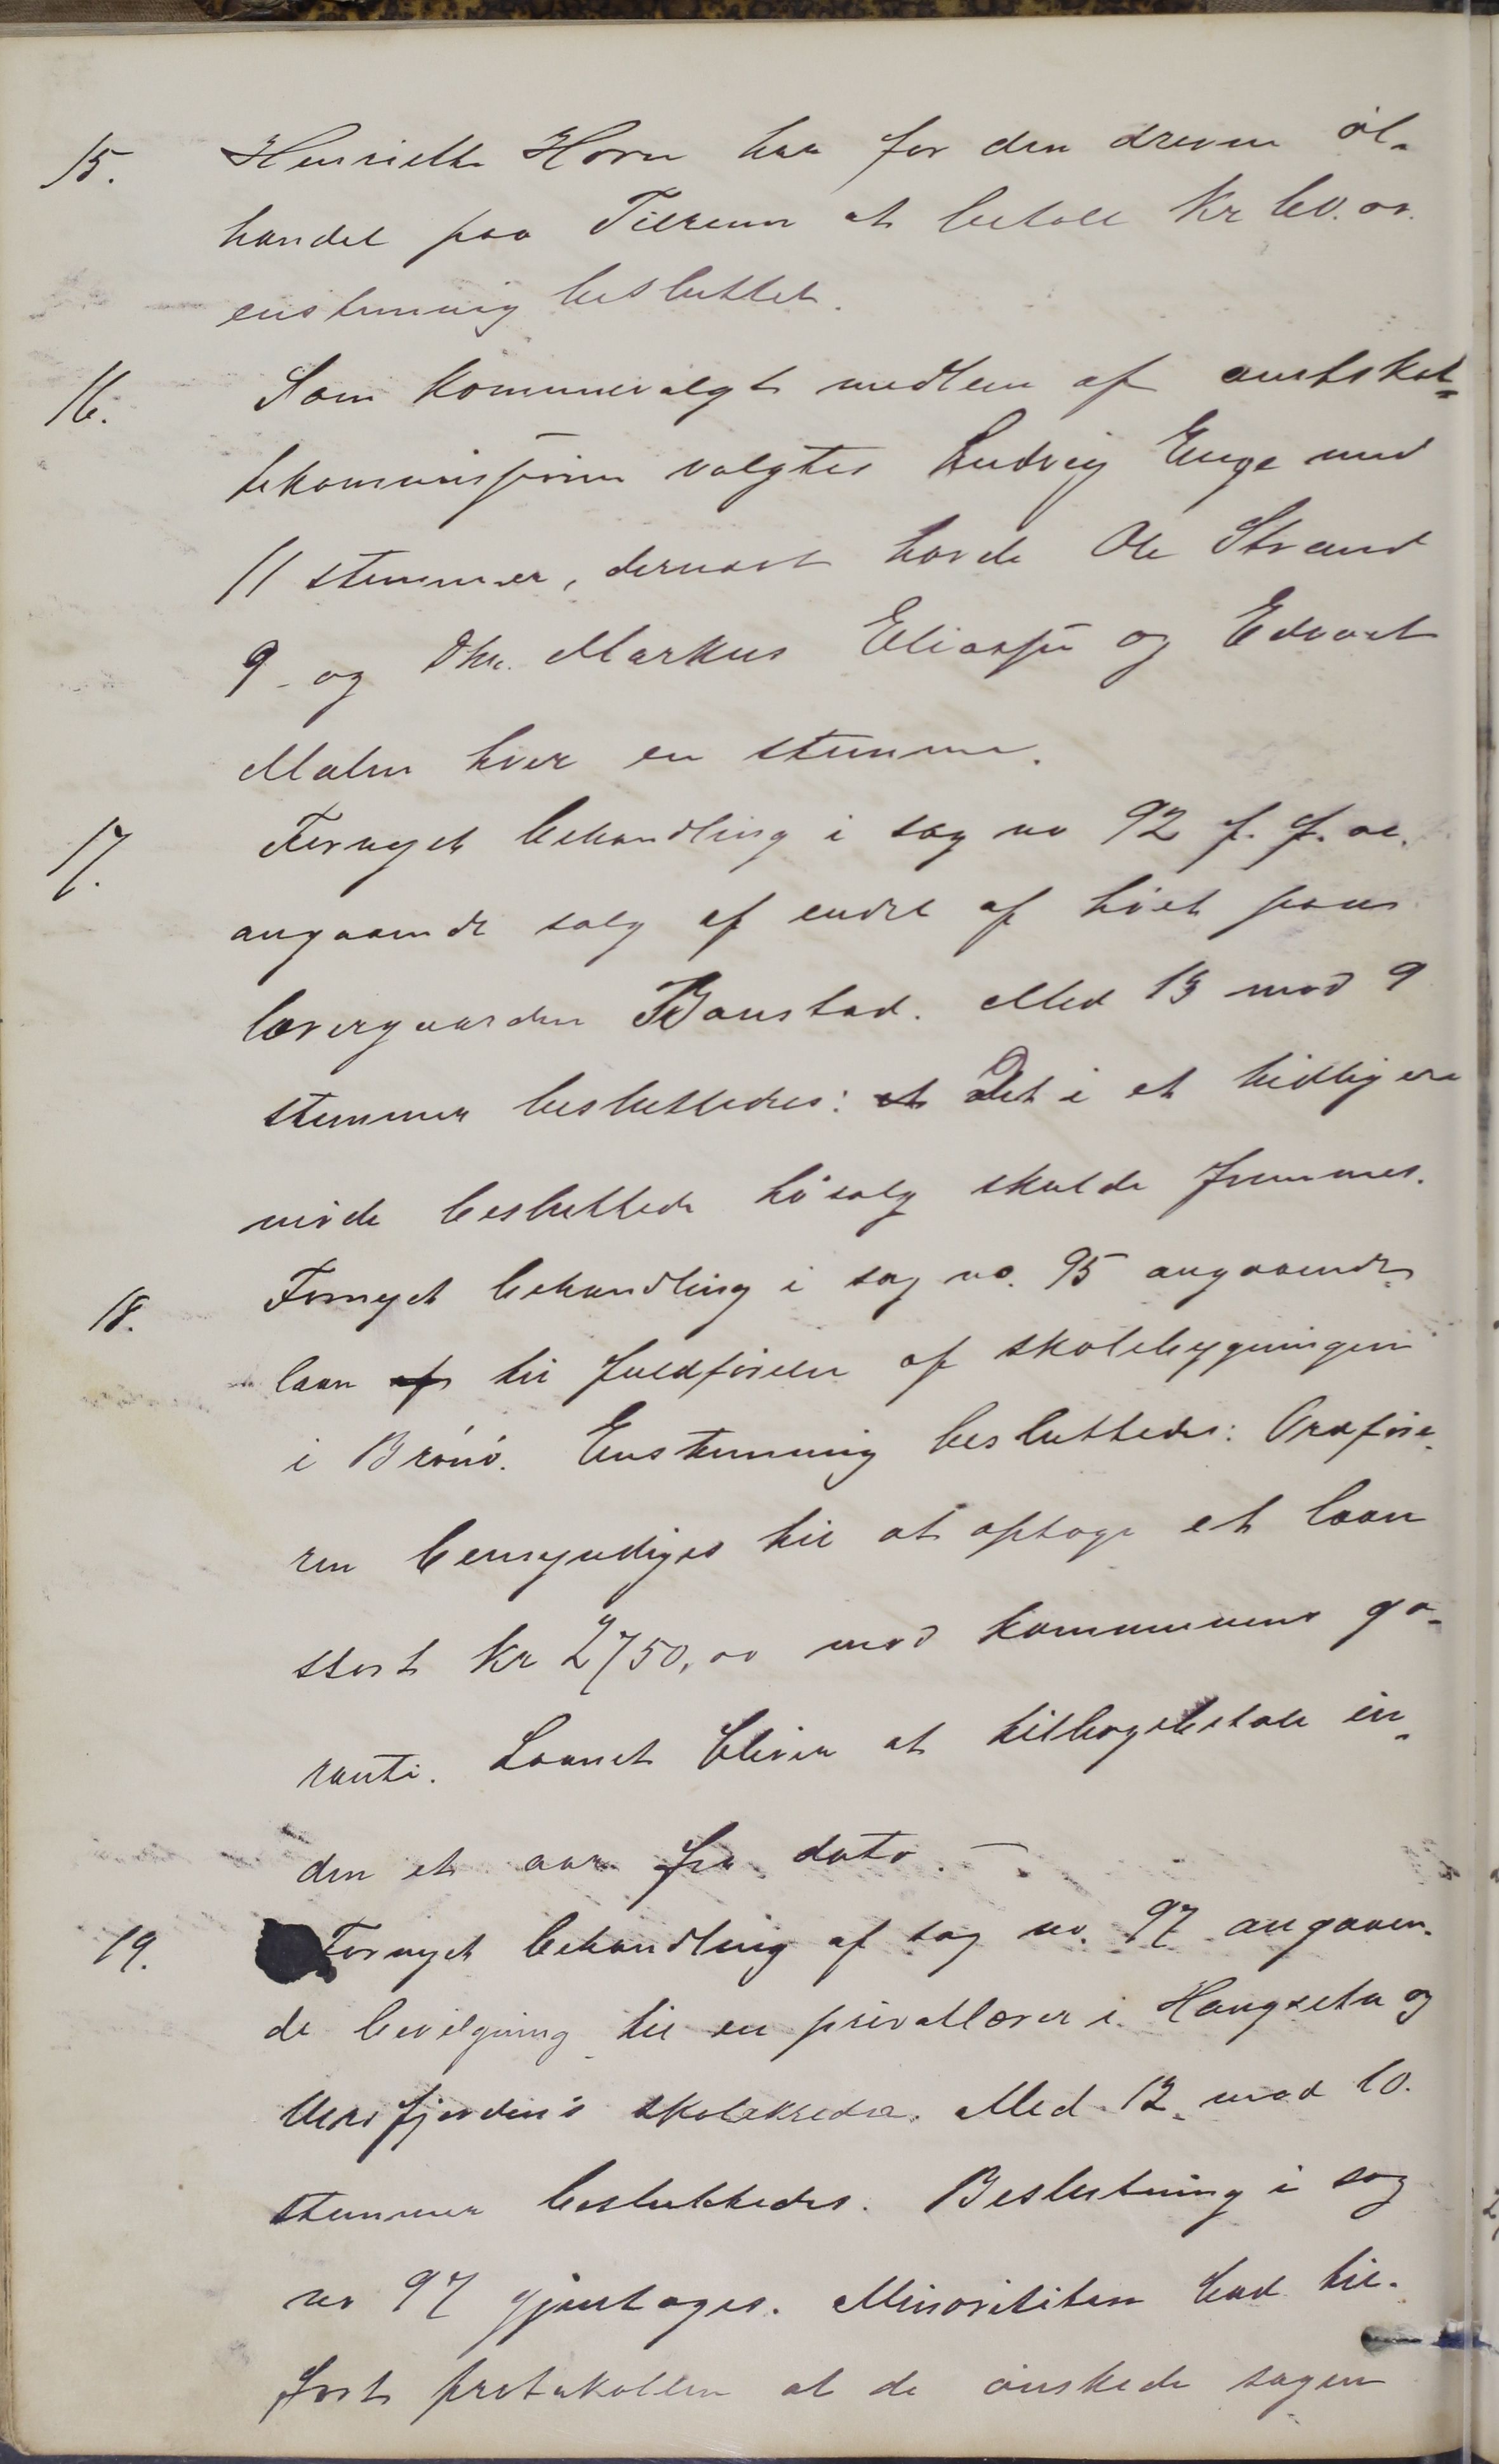 15. Henriette Horn har for den drevne öl-
handel paa Tilrem at betale Kr 60.00.
enstemmig besluttet.
16. Som kommunevalgt medlem af amtskat-
tekommisjonen valgtes Ludvig Enge med
11 stemmer, dernæst havde Ole Strand
9 og Dhr. Markus Eliassen og Edvart
Malm hver en stemme.
17. Fornyet behandling i sag no 92 f. f. a.
angaaende salg af endel af höet paa
lærergaarden Baustad. Med 13 mod 9
stemmer besluttedes: Det i et tidligere
möde besluttede hösalg skulde fremmes.
18. Fornyet behandling i sag no. 95 angaaende
laan til fuldförelse af skolebygningen
i Brönö. Enstemmig besluttedes: Ordföre-
ren bemyndiges til at optage et laan
stort Kr 2750,00 mod kommunens ga-
ranti. Laanet bliver at tilbagebetale in-
den et aar fra dato. —
19. Fornyet behandling af sag no. 97 angaaen-
de bevilgning til en privatlærer i Hangseta og
skolekredse. Med 12 mod 10
stemmer besluttedes. Beslutning i sag
no 97 gjentages. Minoriteten bad til-
fört protokollen at de önskede sagen